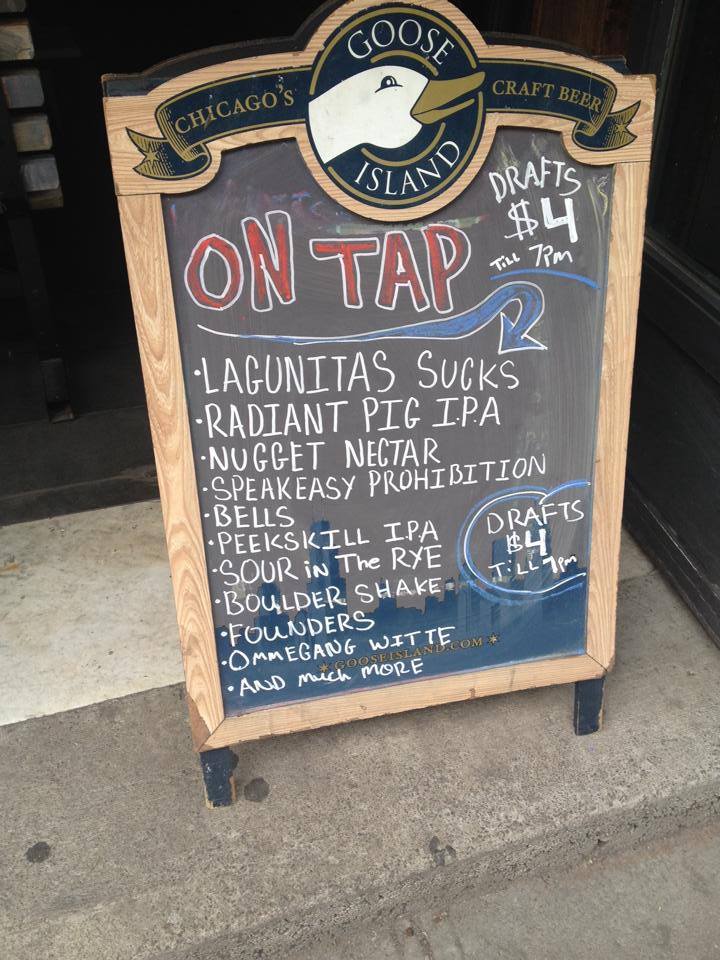 GOOSE
CHICAGO'S
CRAFT BEER
ISLAND
DRAFTS
$4
Till 7pm
ON TAP
·LAGUNITAS SUCKS
·RADIANT PIG I.P.A
·NUGGET NECTAR
·SPEAKEASY PROHIBITION
·BELLS
·PEEKSKILL I.P.A
·SOUR iN The RYE
·BOULDER SHAKE
·FOUNDERS
·OMMEGANG WITTE
·AND much MORE
DRAFTS
$4
TiLL 7pm
*GOOSEISLAND.COM*